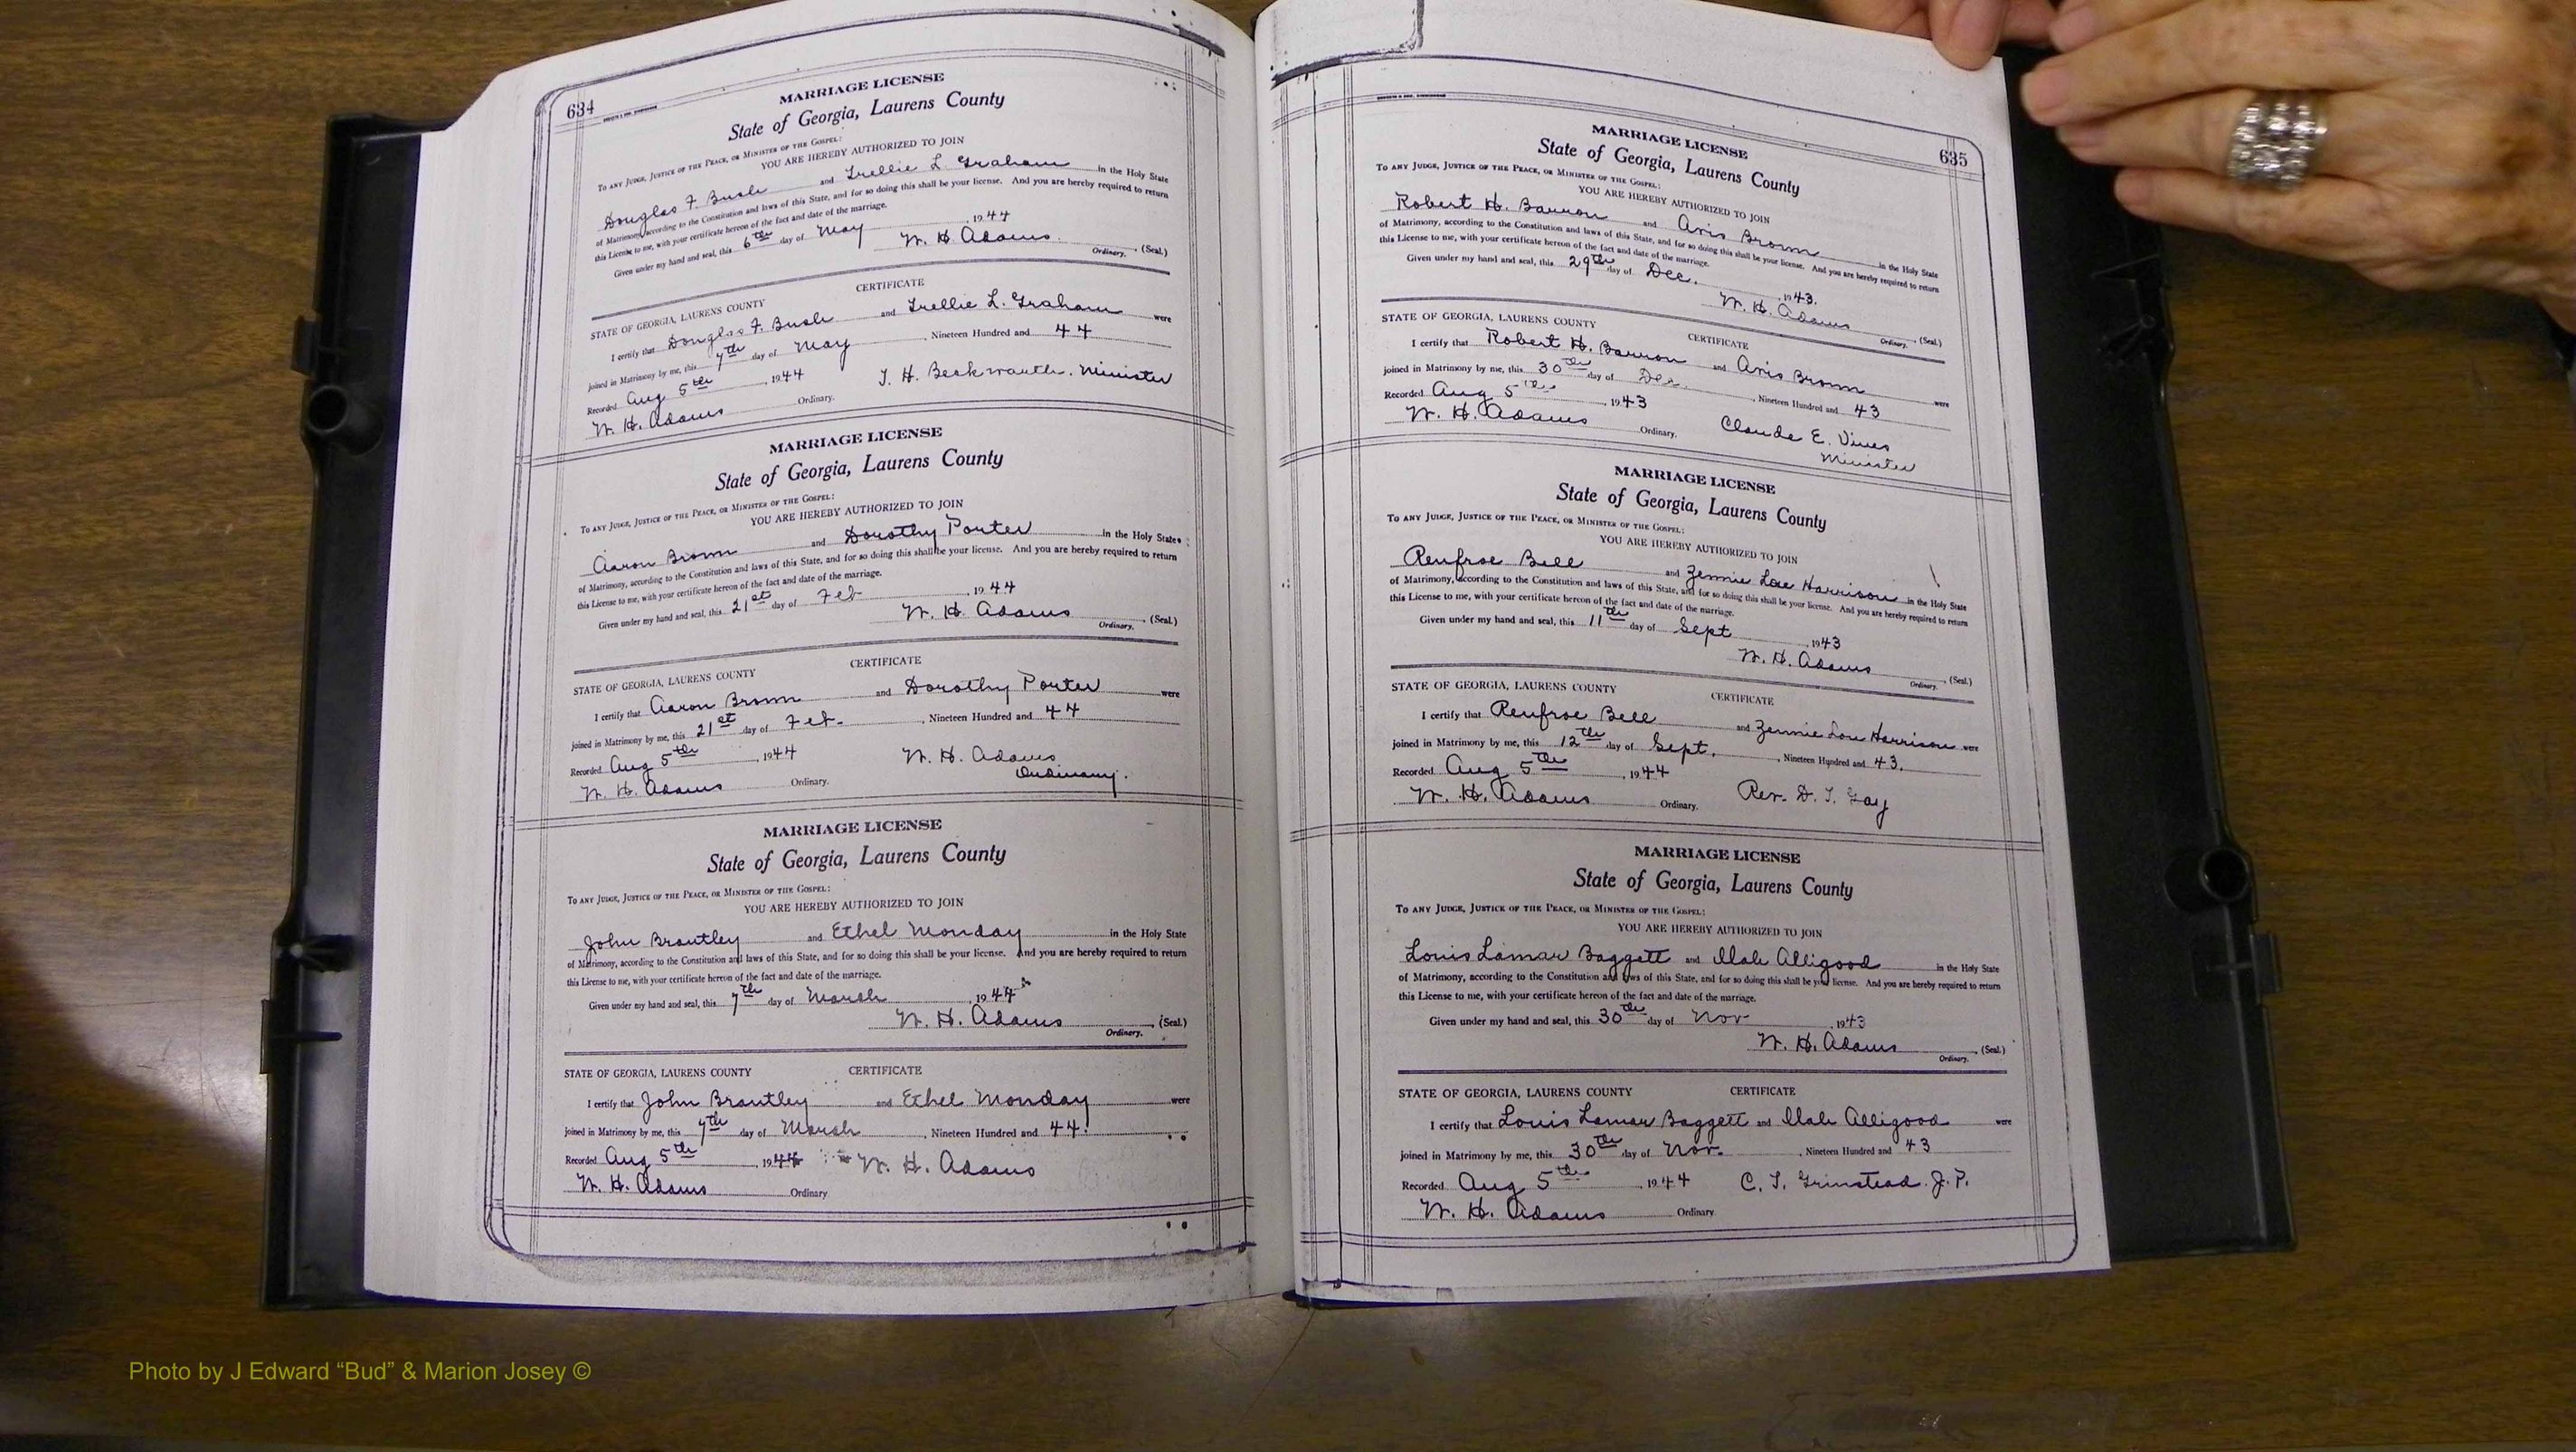 634
MARRIAGE LICENSE
State of Georgia, Laurens County
To any Judge, Justice of the Peace, or Minister of the Gospel:
YOU ARE HEREBY AUTHORIZED TO JOIN
Douglas F. Bush and Trellie L. Graham in the Holy State
of Matrimony, according to the Constitution and laws of this State, and for so doing this shall be your license. And you are hereby required to return
this License to me, with your certificate hereon of the fact and date of the marriage.
Given under my hand and seal, this 6th day of May, 1944
W. H. Adams. (Seal.)
Ordinary.
CERTIFICATE
STATE OF GEORGIA, LAURENS COUNTY
I certify that Douglas F. Bush and Trellie L. Graham were
joined in Matrimony by me, this 7th day of May, Nineteen Hundred and 44
Recorded Aug 5th, 1944 J. H. Beckwauth. Minister
W. H. Adams Ordinary.
MARRIAGE LICENSE
State of Georgia, Laurens County
To any Judge, Justice of the Peace, or Minister of the Gospel:
YOU ARE HEREBY AUTHORIZED TO JOIN
Aaron Brown and Dorothy Porter in the Holy State
of Matrimony, according to the Constitution and laws of this State, and for so doing this shall be your license. And you are hereby required to return
this License to me, with your certificate hereon of the fact and date of the marriage.
Given under my hand and seal, this 21st day of Feb, 1944
W. H. Adams (Seal.)
Ordinary.
CERTIFICATE
STATE OF GEORGIA, LAURENS COUNTY
I certify that Aaron Brown and Dorothy Porter were
joined in Matrimony by me, this 21st day of Feb., Nineteen Hundred and 44
Recorded Aug 5th, 1944 W. H. Adams
Ordinary.
W. H. Adams Ordinary.
MARRIAGE LICENSE
State of Georgia, Laurens County
To any Judge, Justice of the Peace, or Minister of the Gospel:
YOU ARE HEREBY AUTHORIZED TO JOIN
John Brantley and Ethel Monday in the Holy State
of Matrimony, according to the Constitution and laws of this State, and for so doing this shall be your license. And you are hereby required to return
this License to me, with your certificate hereon of the fact and date of the marriage.
Given under my hand and seal, this 7th day of March, 1944
W. H. Adams (Seal.)
Ordinary.
STATE OF GEORGIA, LAURENS COUNTY CERTIFICATE
I certify that John Brantley and Ethel Monday were
joined in Matrimony by me, this 7th day of March, Nineteen Hundred and 44.
Recorded Aug 5th, 1944 W. H. Adams
W. H. Adams Ordinary
635
MARRIAGE LICENSE
State of Georgia, Laurens County
To any Judge, Justice of the Peace, or Minister of the Gospel:
YOU ARE HEREBY AUTHORIZED TO JOIN
Robert H. Barron and Avis Brown in the Holy State
of Matrimony, according to the Constitution and laws of this State, and for so doing this shall be your license. And you are hereby required to return
this License to me, with your certificate hereon of the fact and date of the marriage.
Given under my hand and seal, this 29th day of Dec., 1943.
W. H. Adams (Seal.)
Ordinary.
STATE OF GEORGIA, LAURENS COUNTY CERTIFICATE
I certify that Robert H. Barron and Avis Brown were
joined in Matrimony by me, this 30th day of Dec., Nineteen Hundred and 43
Recorded Aug 5th, 1943
W. H. Adams Ordinary. Claude E. Vines
Minister
MARRIAGE LICENSE
State of Georgia, Laurens County
To any Judge, Justice of the Peace, or Minister of the Gospel:
YOU ARE HEREBY AUTHORIZED TO JOIN
Renfroe Bell and Zennie Lou Harrison in the Holy State
of Matrimony, according to the Constitution and laws of this State, and for so doing this shall be your license. And you are hereby required to return
this License to me, with your certificate hereon of the fact and date of the marriage.
Given under my hand and seal, this 11th day of Sept, 1943
W. H. Adams (Seal.)
Ordinary.
STATE OF GEORGIA, LAURENS COUNTY CERTIFICATE
I certify that Renfroe Bell and Zennie Lou Harrison were
joined in Matrimony by me, this 12th day of Sept., Nineteen Hundred and 43.
Recorded Aug 5th, 1944
W. H. Adams Ordinary. Rev. D. T. Gay
MARRIAGE LICENSE
State of Georgia, Laurens County
To any Judge, Justice of the Peace, or Minister of the Gospel:
YOU ARE HEREBY AUTHORIZED TO JOIN
Louis Lamar Baggett and Alligood in the Holy State
of Matrimony, according to the Constitution and laws of this State, and for so doing this shall be your license. And you are hereby required to return
this License to me, with your certificate hereon of the fact and date of the marriage.
Given under my hand and seal, this 30th day of Nov, 1943
W. H. Adams (Seal.)
Ordinary.
STATE OF GEORGIA, LAURENS COUNTY CERTIFICATE
I certify that Louis Lamar Baggett and Alligood were
joined in Matrimony by me, this 30th day of Nov., Nineteen Hundred and 43
Recorded Aug 5th, 1944 C. T. Grinstead. J. P.
W. H. Adams Ordinary
Photo by J Edward “Bud” & Marion Josey ©